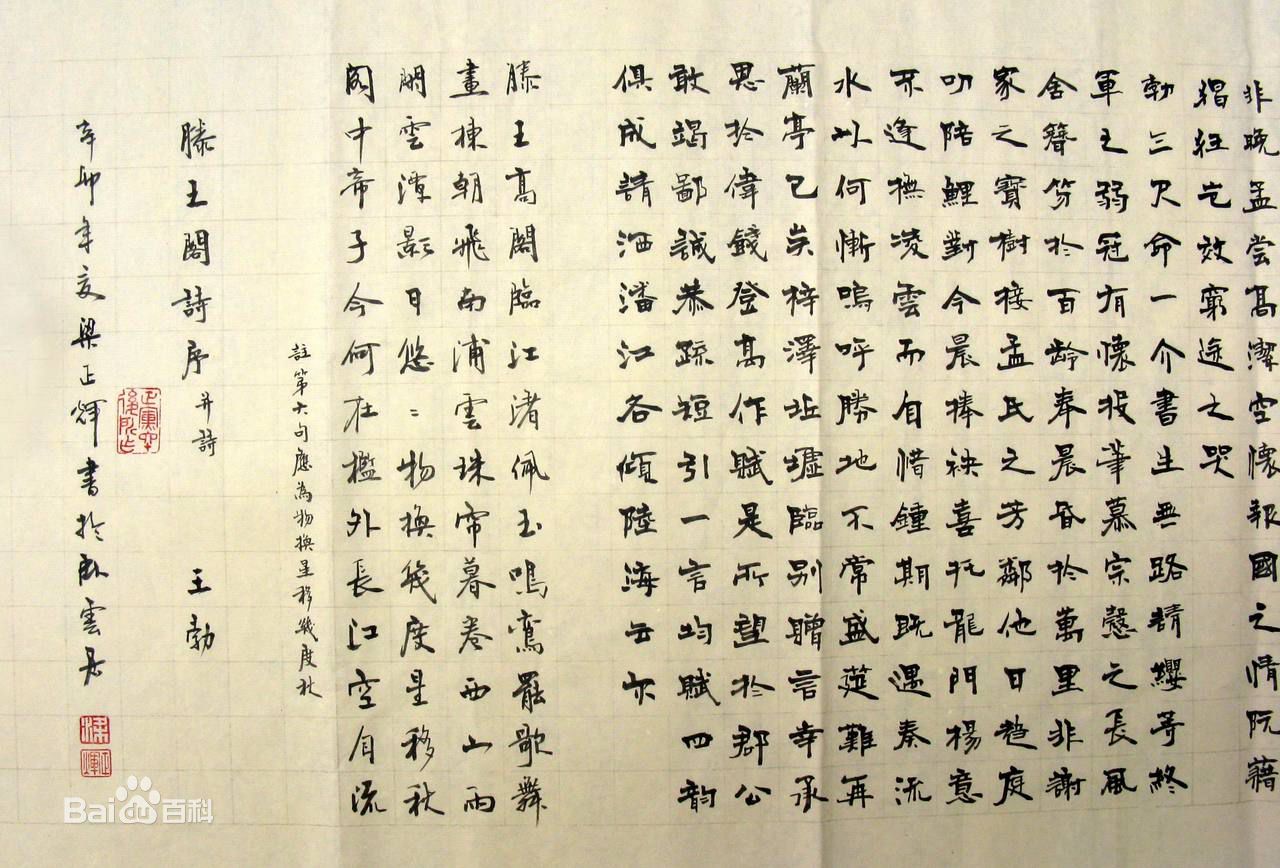 非晚孟嘗高潔空懷報國之情阮藉
猖狂豈效窮途之哭
勃三尺命一介書生無路請纓等終
軍之弱冠有懷投筆慕宗慤之長風
舍簪笏於百齡奉晨昏於萬里非謝
家之寶樹接孟氏之芳鄰他日趨庭
叨陪鯉對今晨捧袂喜托龍門楊意
不逢撫凌雲而自惜鍾期既遇奏流
水以何慚嗚呼勝地不常盛筵難再
蘭亭已矣梓澤丘墟臨別贈言幸承
恩於偉餞登高作賦是所望於群公
敢竭鄙誠恭疏短引一言均賦四韵
俱成請洒潘江各傾陸海云尔
滕王高閣臨江渚佩玉鳴鸞罷歌舞
畫棟朝飛南浦雲珠帘暮卷西山雨
閑雲潭影日悠〻物換幾度星移秋
閣中帝子今何在檻外長江空自流
註第六句應為物換星移幾度秋
滕王閣詩序并詩 王勃
辛卯年夏梁正輝書於臥雲居
Bai百科